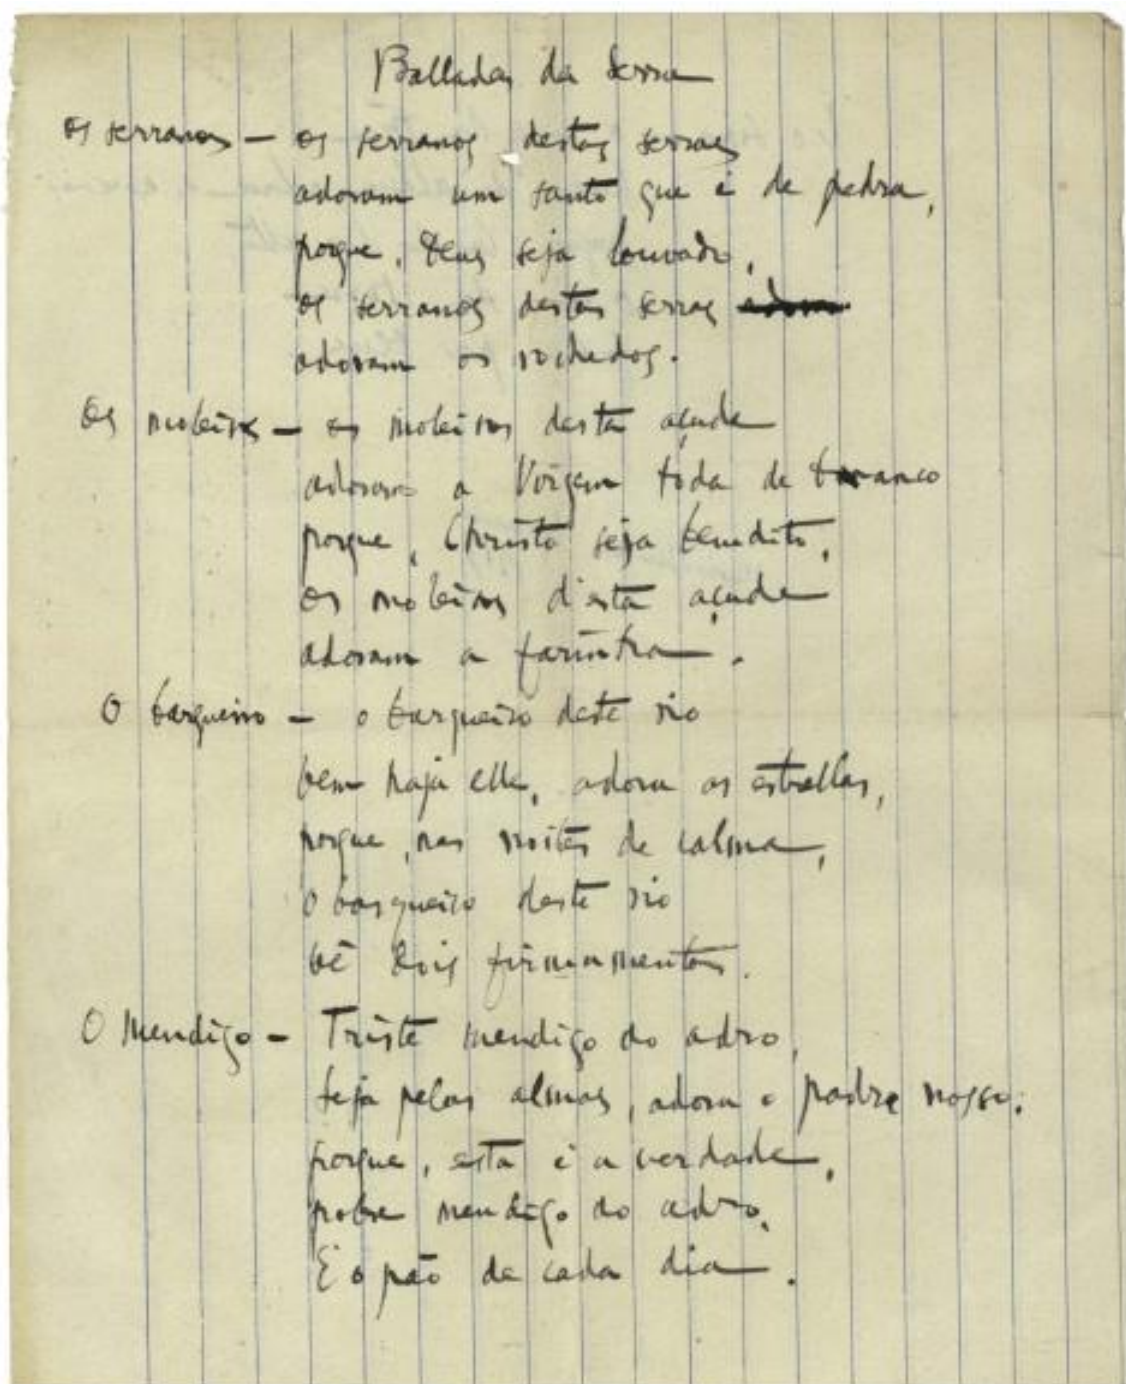 Balladas da Serra
Os serranos — os serranos destas serras
adoram um santo que é de pedra,
porque, Deus seja louvado,
os serranos destas serras adora
adoram os rochedos.
Os moleiros — os moleiros desta açude
adoram a Virgem toda de branco
porque, Christo seja bemdito,
os moleiros d'esta açude
adoram a farinha.
O barqueiro — o barqueiro deste rio
bem haja elle, adora as estrellas,
porque, nas noites de calma,
o barqueiro deste rio
vê dois firmamentos.
O Mendigo — Triste mendigo do adro,
seja pelas almas, adora o padre nosso.
porque, esta é a verdade,
pobre mendigo do adro,
É o pão de cada dia.